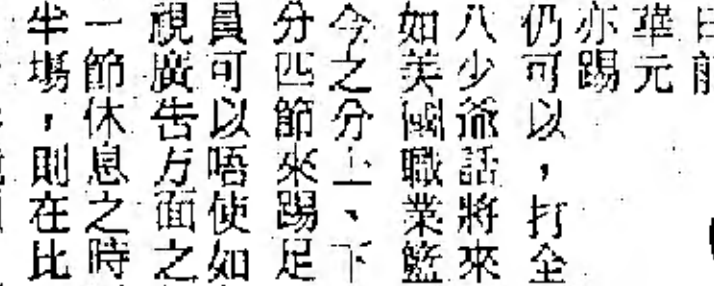 華元
亦踢
仍可以，打全
八少爺話將來
如美國職業籃
今之分上、下
分四節來踢足
員可以唔使如
視廣告方面之
一節休息之時
半場，則在比